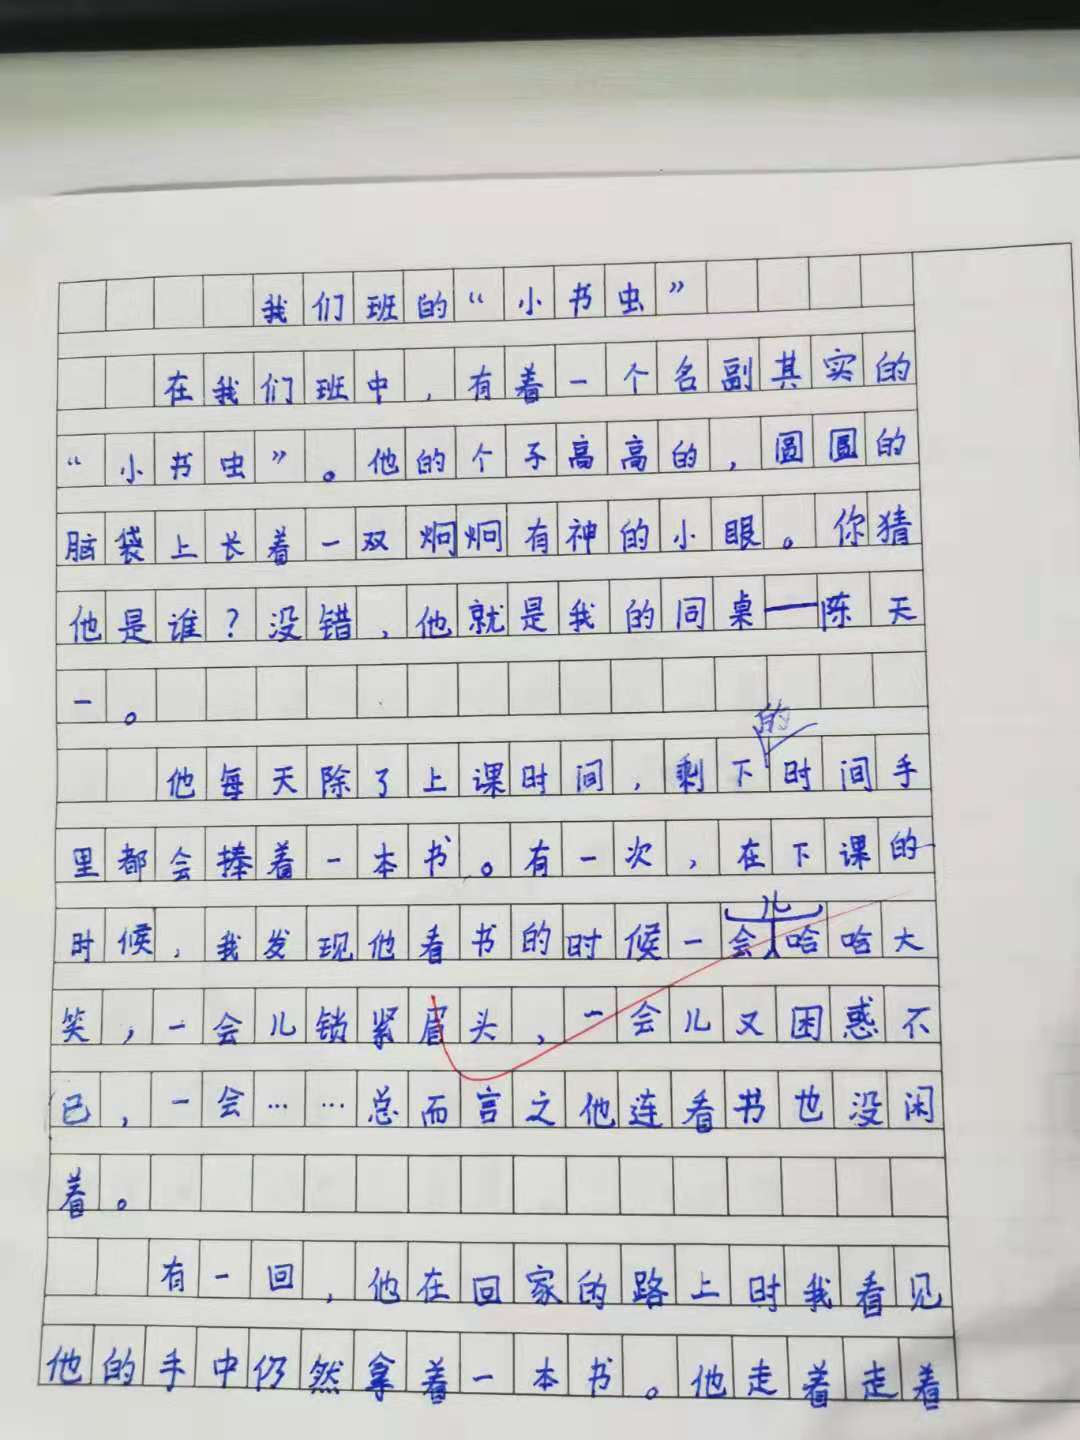 我们班的“小书虫”
在我们班中，有着一个名副其实的
“小书虫”。他的个子高高的，圆圆的
脑袋上长着一双炯炯有神的小眼。你猜
他是谁？没错，他就是我的同桌——陈天
一。
他每天除了上课时间，剩下的时间手
里都会捧着一本书。有一次，在下课的
时候，我发现他看书的时候一会儿哈哈大
笑，一会儿锁紧眉头，一会儿又困惑不
已，一会……总而言之他连看书也没闲
着。
有一回，他在回家的路上时我看见
他的手中仍然拿着一本书。他走着走着